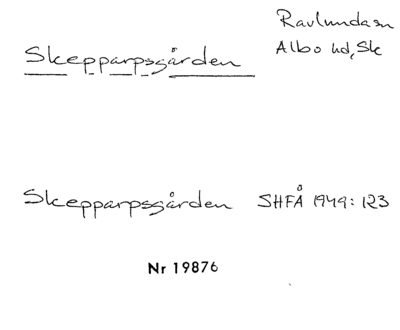 Ravlunda sn
Skepparpsgården
Albo hd, Sk
Skepparpsgården SHFÅ 1949: 123
Nr 19876